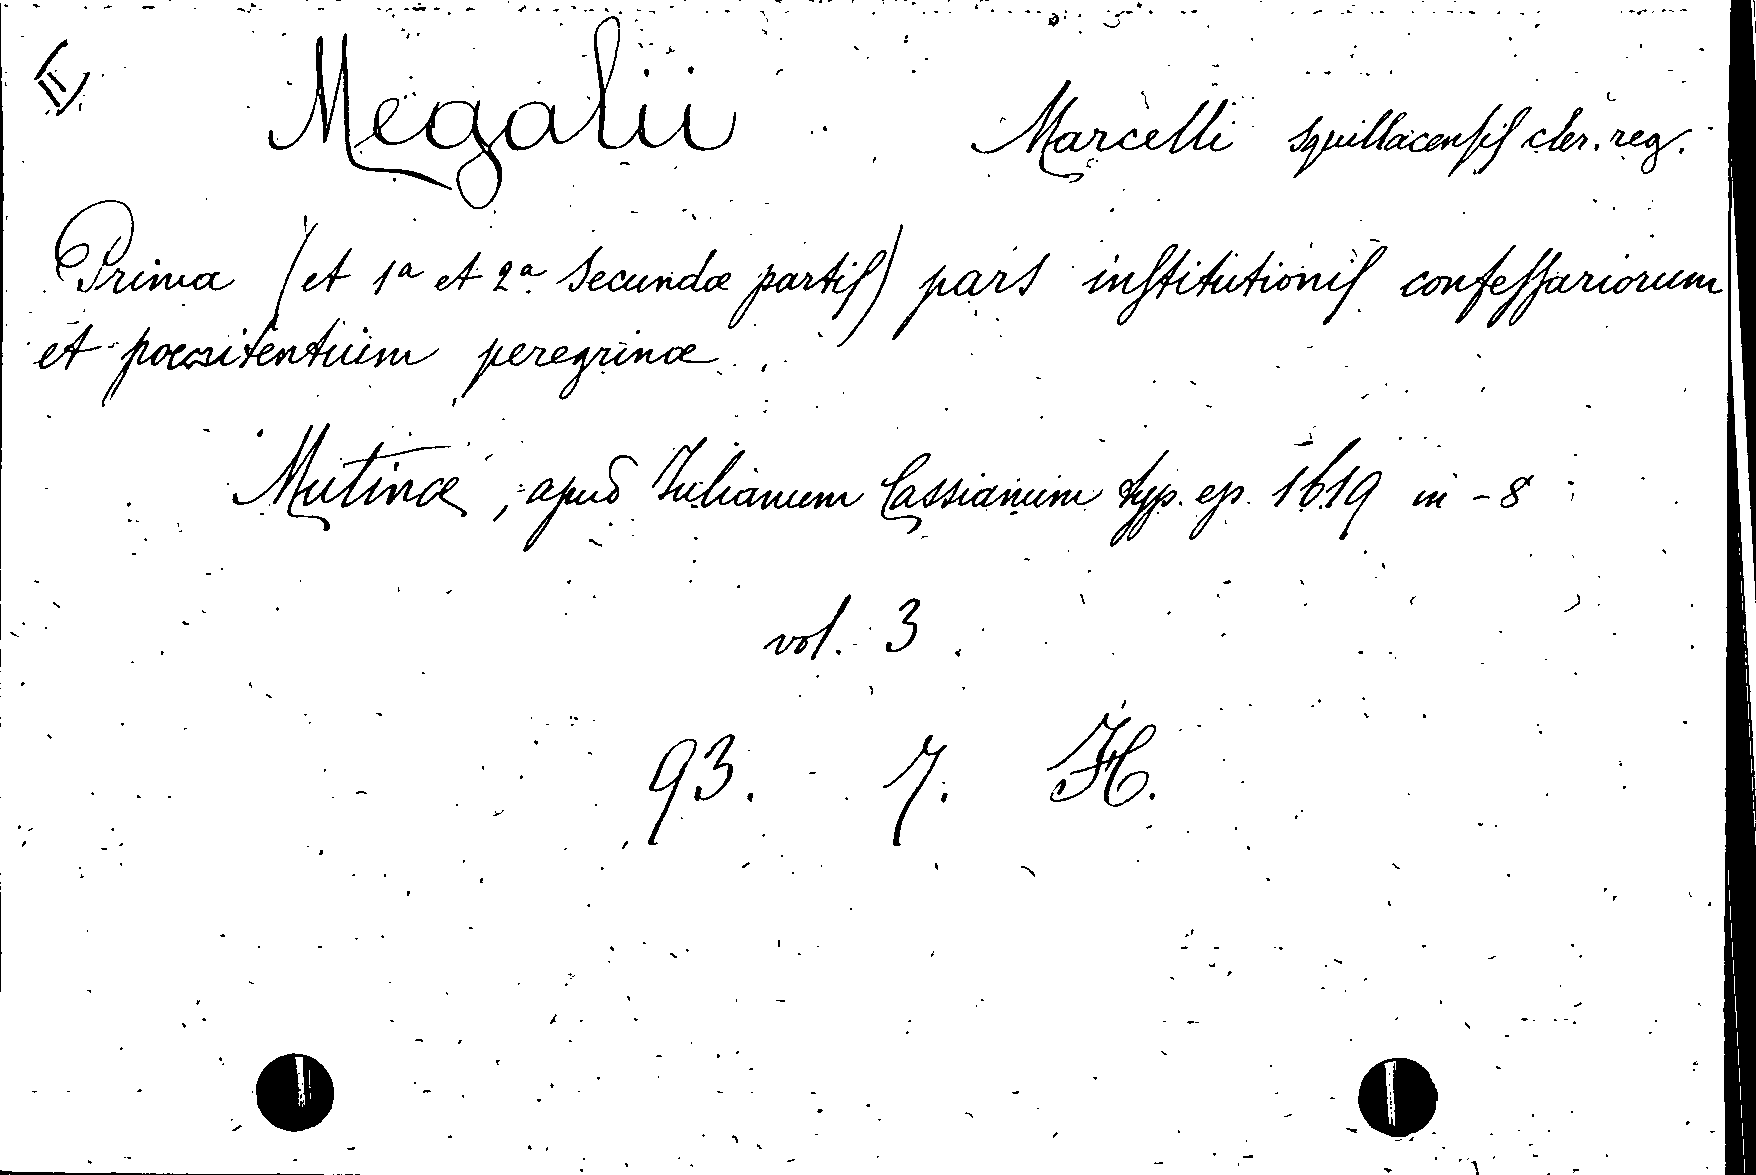 II
Megalii Marcelli squillacensis cler. reg.
Prima (et 1a et 2a secundæ partis) pars institutionis confessariorum
et poenitentium peregrinæ
Mutinæ, apud Iulianum Cassianum typ. ep. 1619 in-8
vol. 3.
93. 7. H.